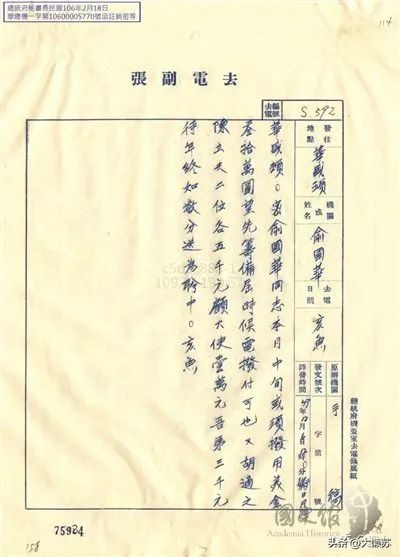 總統府秘書長民國106年2月18日
華總機一字第10600005770號函註銷密等
114
張副電去
去電編號 S.592
發往地點 華盛頓
機關或姓名 俞國華
去電日期 亥魚
原辦機關 手稿
發文號次 字第 號
譯發時間
華盛頓。密俞國華同志本月中旬或須撥用美金
叁拾萬圓望先籌備屆時候電撥付可也又胡適之
陳立夫二位各五千元顧大使壹萬元吾弟三千元
待年終如數分送為盼中。亥魚
75924
158
國史館
Academia Historica
头条 @大懒苏